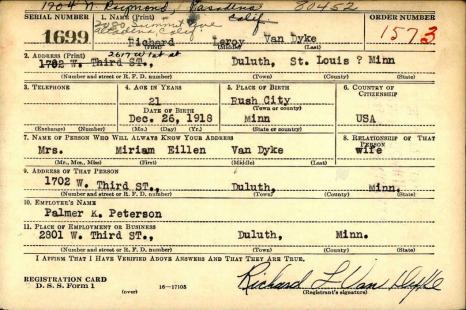 1904 N Raymond, Pasadena 80452
Calif
SERIAL NUMBER 1. NAME (Print) ORDER NUMBER
2080 Summit Ave
Altadena, Calif
1699 Richard Leroy Van Dyke 1573
(First) (Middle) (Last)
2. ADDRESS (Print) 2617 W 1st st
1702 W. Third ST., Duluth, St. Louis ? Minn
(Number and street or R. F. D. number) (Town) (County) (State)
3. TELEPHONE 4. AGE IN YEARS 5. PLACE OF BIRTH 6. COUNTRY OF CITIZENSHIP
21 Rush City
DATE OF BIRTH (Town or county)
Dec. 26, 1918 Minn USA
(Exchange) (Number) (Mo.) (Day) (Yr.) (State or country)
7. NAME OF PERSON WHO WILL ALWAYS KNOW YOUR ADDRESS 8. RELATIONSHIP OF THAT PERSON
Mrs. Miriam Eillen Van Dyke wife
(Mr., Mrs., Miss) (First) (Middle) (Last)
9. ADDRESS OF THAT PERSON
1702 W. Third ST., Duluth, Minn.
(Number and street or R. F. D. number) (Town) (County) (State)
10. EMPLOYER'S NAME
Palmer K. Peterson
11. PLACE OF EMPLOYMENT OR BUSINESS
2801 W. Third ST., Duluth, Minn.
(Number and street or R. F. D. number) (Town) (County) (State)
I AFFIRM THAT I HAVE VERIFIED ABOVE ANSWERS AND THAT THEY ARE TRUE.
REGISTRATION CARD
D. S. S. Form 1 (over) 16—17105 Richard L Van Dyke
(Registrant's signature)